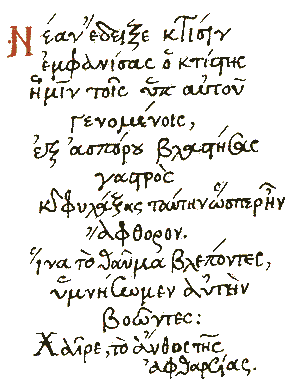 Νέαν ἔδειξε κτίσιν
ἐμφανίσας ὁ κτίστης
ἡμῖν τοῖς ὑπ' αὐτοῦ
γενομένοις,
ἐξ ἀσπόρου βλαστήσας
γαστρὸς
καὶ φυλάξας ταύτην ὥσπερ ἦν
ἄφθορον.
ἵνα τὸ θαῦμα βλέποντες,
ὑμνήσωμεν αὐτὴν
βοῶντες:
Χαῖρε, τὸ ἄνθος τῆς
ἀφθαρσίας.